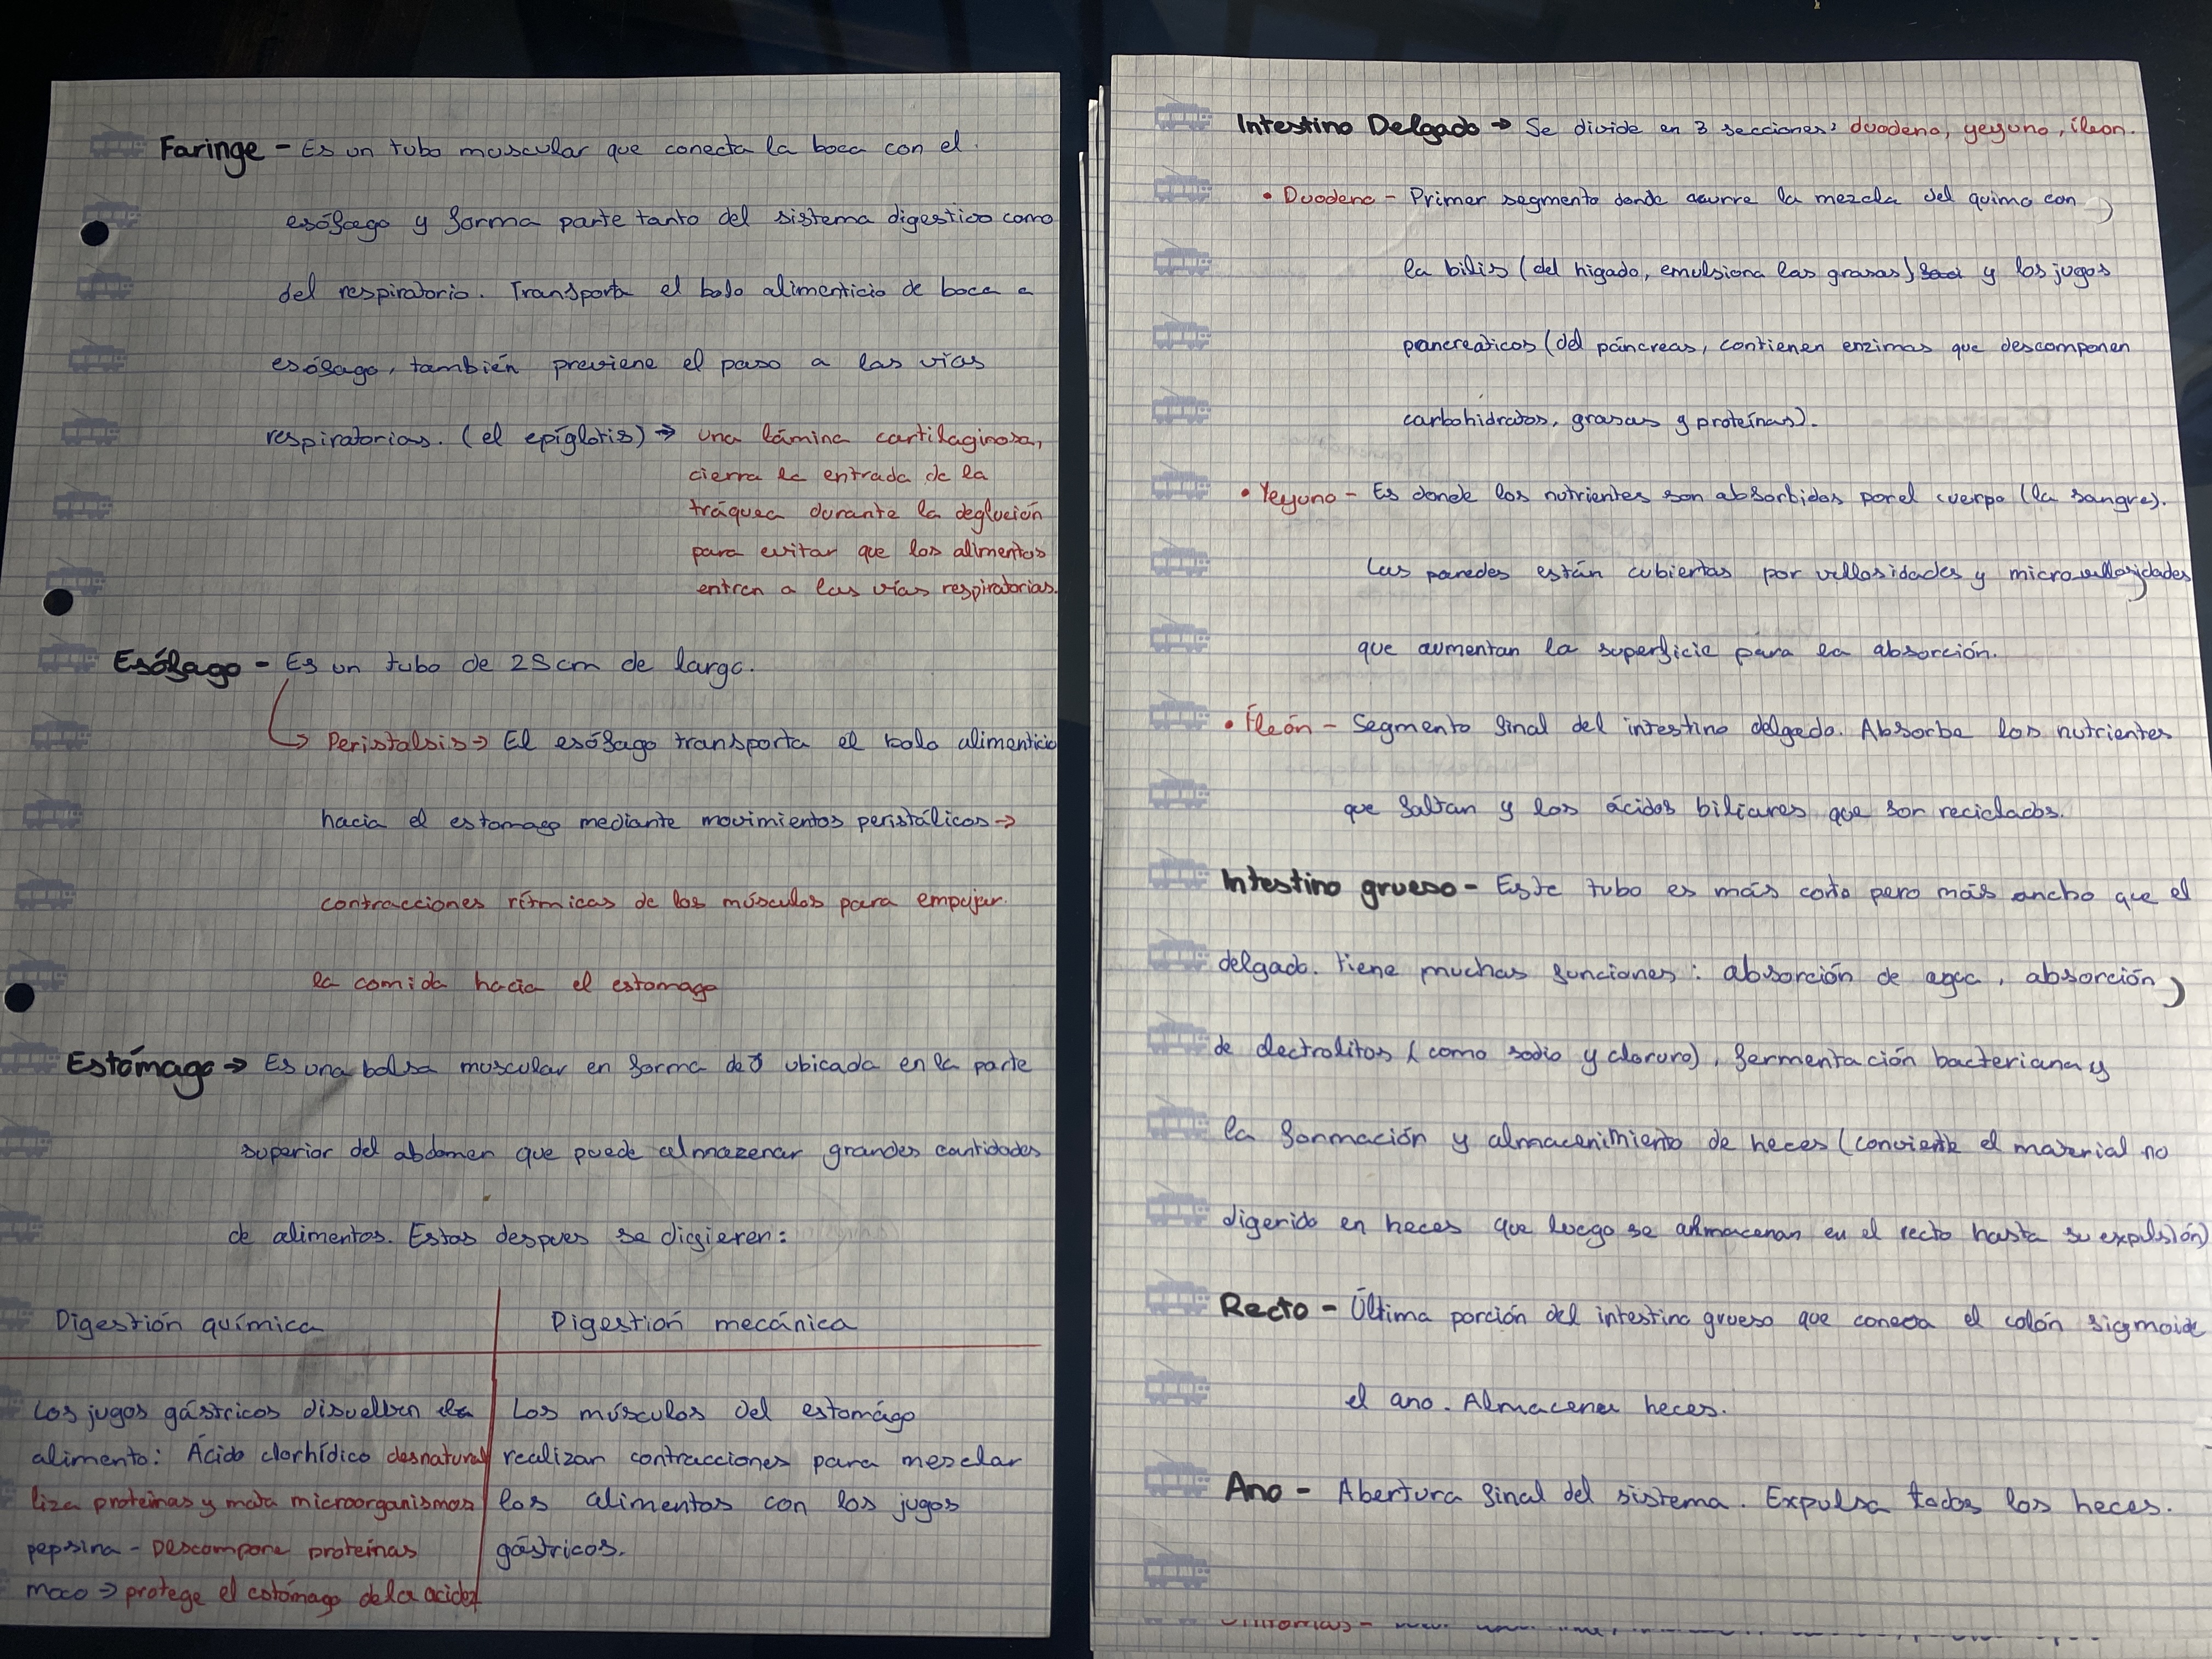 Faringe - Es un tubo muscular que conecta la boca con el
esófago y forma parte tanto del sistema digestivo como
del respiratorio. Transporta el bolo alimenticio de boca a
esófago, también previene el paso a las vías
respiratorias. (el epíglotis) → una lámina cartilaginosa,
cierra la entrada de la
tráquea durante la deglución
para evitar que los alimentos
entren a las vías respiratorias.
Esófago - Es un tubo de 25cm de largo.
Peristalsis → El esófago transporta el bolo alimenticio
hacia el estomago mediante movimientos peristálicos →
contracciones rítmicas de los músculos para empujar
la comida hacia el estomago
Estómago → Es una bolsa muscular en forma de J ubicada en la parte
superior del abdomen que puede almazenar grandes cantidades
de alimentos. Estas despues se digieren:
Digestión química
Digestión mecánica
Los jugos gástricos disuelben
alimento: Ácido clorhídico desnatural
liza proteínas y mata microorganismos
pepsina - Descompone proteínas
moco → protege el estómago de la acidez
Los músculos del estomágo
realizan contracciones para mesclar
los alimentos con los jugos
gástricos.
Intestino Delgado → Se divide en 3 secciones: duodeno, yeyuno, íleon.
• Duodeno - Primer segmento donde ocurre la mezcla del quimo con
la bilis (del higado, emulsiona las grasas) y los jugos
pancreáticos (del páncreas, contienen enzimas que descomponen
carbohidratos, grasas y proteínas).
• Yeyuno - Es donde los nutrientes son absorbidos por el cuerpo (la sangre).
Las paredes están cubiertas por vellosidades y microvellosidades
que aumentan la superficie para la absorción.
• Íleón - Segmento final del intestino delgado. Absorbe los nutrientes
que faltan y los ácidos biliares que son reciclados.
Intestino grueso - Este tubo es más corto pero más ancho que el
delgado. tiene muchas funciones: absorción de agua, absorción
de electrolitos (como sodio y cloruro), fermentación bacteriana y
la formación y almacenimiento de heces (convierte el material no
digerido en heces que luego se almacenan en el recto hasta su expulsión)
Recto - Última porción del intestino grueso que conecta el colón sigmoide
el ano. Almacena heces.
Ano - Abertura final del sistema. Expulsa todas las heces.